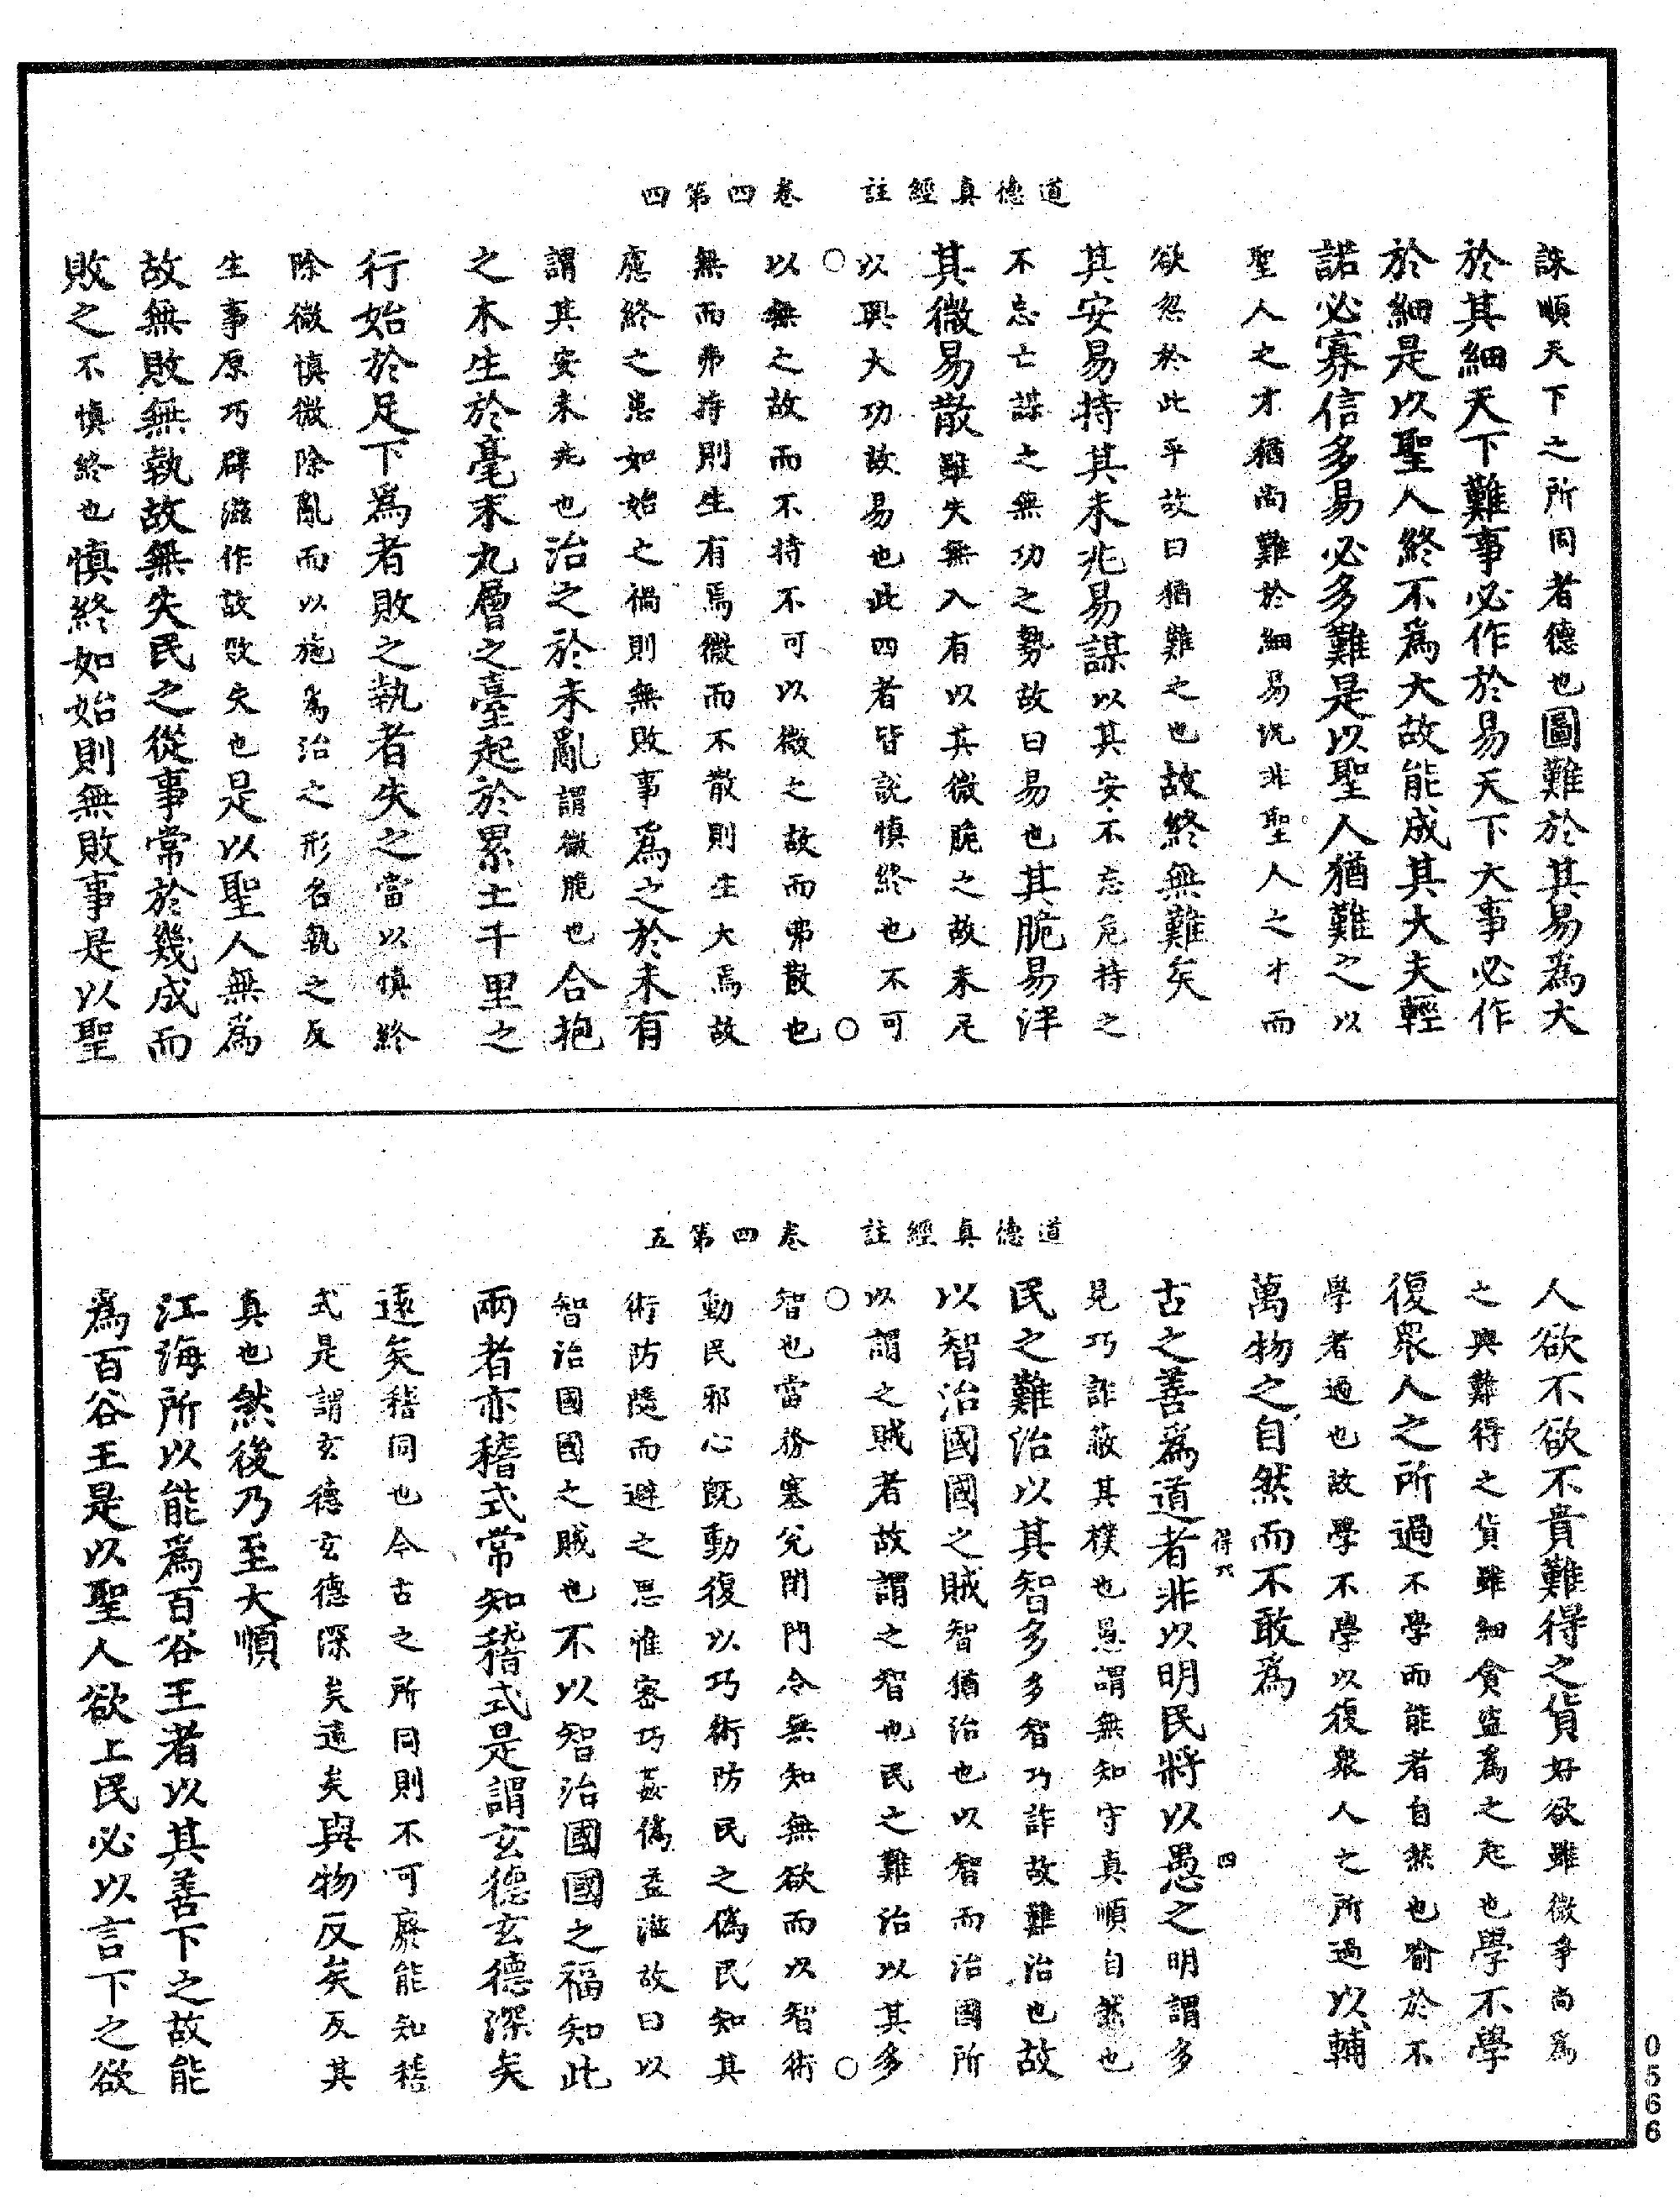 道德真經註　卷四第四
誅順天下之所同者德也圖難於其易為大
於其細天下難事必作於易天下大事必作
於細是以聖人終不為大故能成其大夫輕
諾必寡信多易必多難是以聖人猶難之以
聖人之才猶尚難於細易況非聖人之才而
欲忽於此乎故曰猶難之也故終無難矣
其安易持其未兆易謀以其安不忘危持之
不忘亡謀之無功之勢故曰易也其脆易泮
其微易散雖失無入有以其微脆之故未足
以興大功故易也此四者皆說慎終也不可
以無之故而不持不可以微之故而弗散也
無而弗持則生有焉微而不散則生大焉故
慮終之患如始之禍則無敗事為之於未有
謂其安未兆也治之於未亂謂微脆也合抱
之木生於毫末九層之臺起於累土千里之
行始於足下為者敗之執者失之當以慎終
除微慎微除亂而以施為治之形名執之反
生事原巧辟滋作故敗失也是以聖人無為
故無敗無執故無失民之從事常於幾成而
敗之不慎終也慎終如始則無敗事是以聖
道德真經註　卷四第五
人欲不欲不貴難得之貨好欲雖微爭尚為
之興難得之貨雖細貪盜為之起也學不學
復眾人之所過不學而能者自然也喻於不
學者過也故學不學以復眾人之所過以輔
萬物之自然而不敢為
得六　四
古之善為道者非以明民將以愚之明謂多
見巧詐蔽其樸也愚謂無知守真順自然也
民之難治以其智多多智巧詐故難治也故
以智治國國之賊智猶治也以智而治國所
以謂之賊者故謂之智也民之難治以其多
智也當務塞兌閉門令無知無欲而以智術
動民邪心既動復以巧術防民之偽民知其
術防隨而避之思惟密巧姦偽益滋故曰以
智治國國之賊也不以智治國國之福知此
兩者亦稽式常知稽式是謂玄德玄德深矣
遠矣稽同也今古之所同則不可廢能知稽
式是謂玄德玄德深矣遠矣與物反矣反其
真也然後乃至大順
江海所以能為百谷王者以其善下之故能
為百谷王是以聖人欲上民必以言下之欲
0566